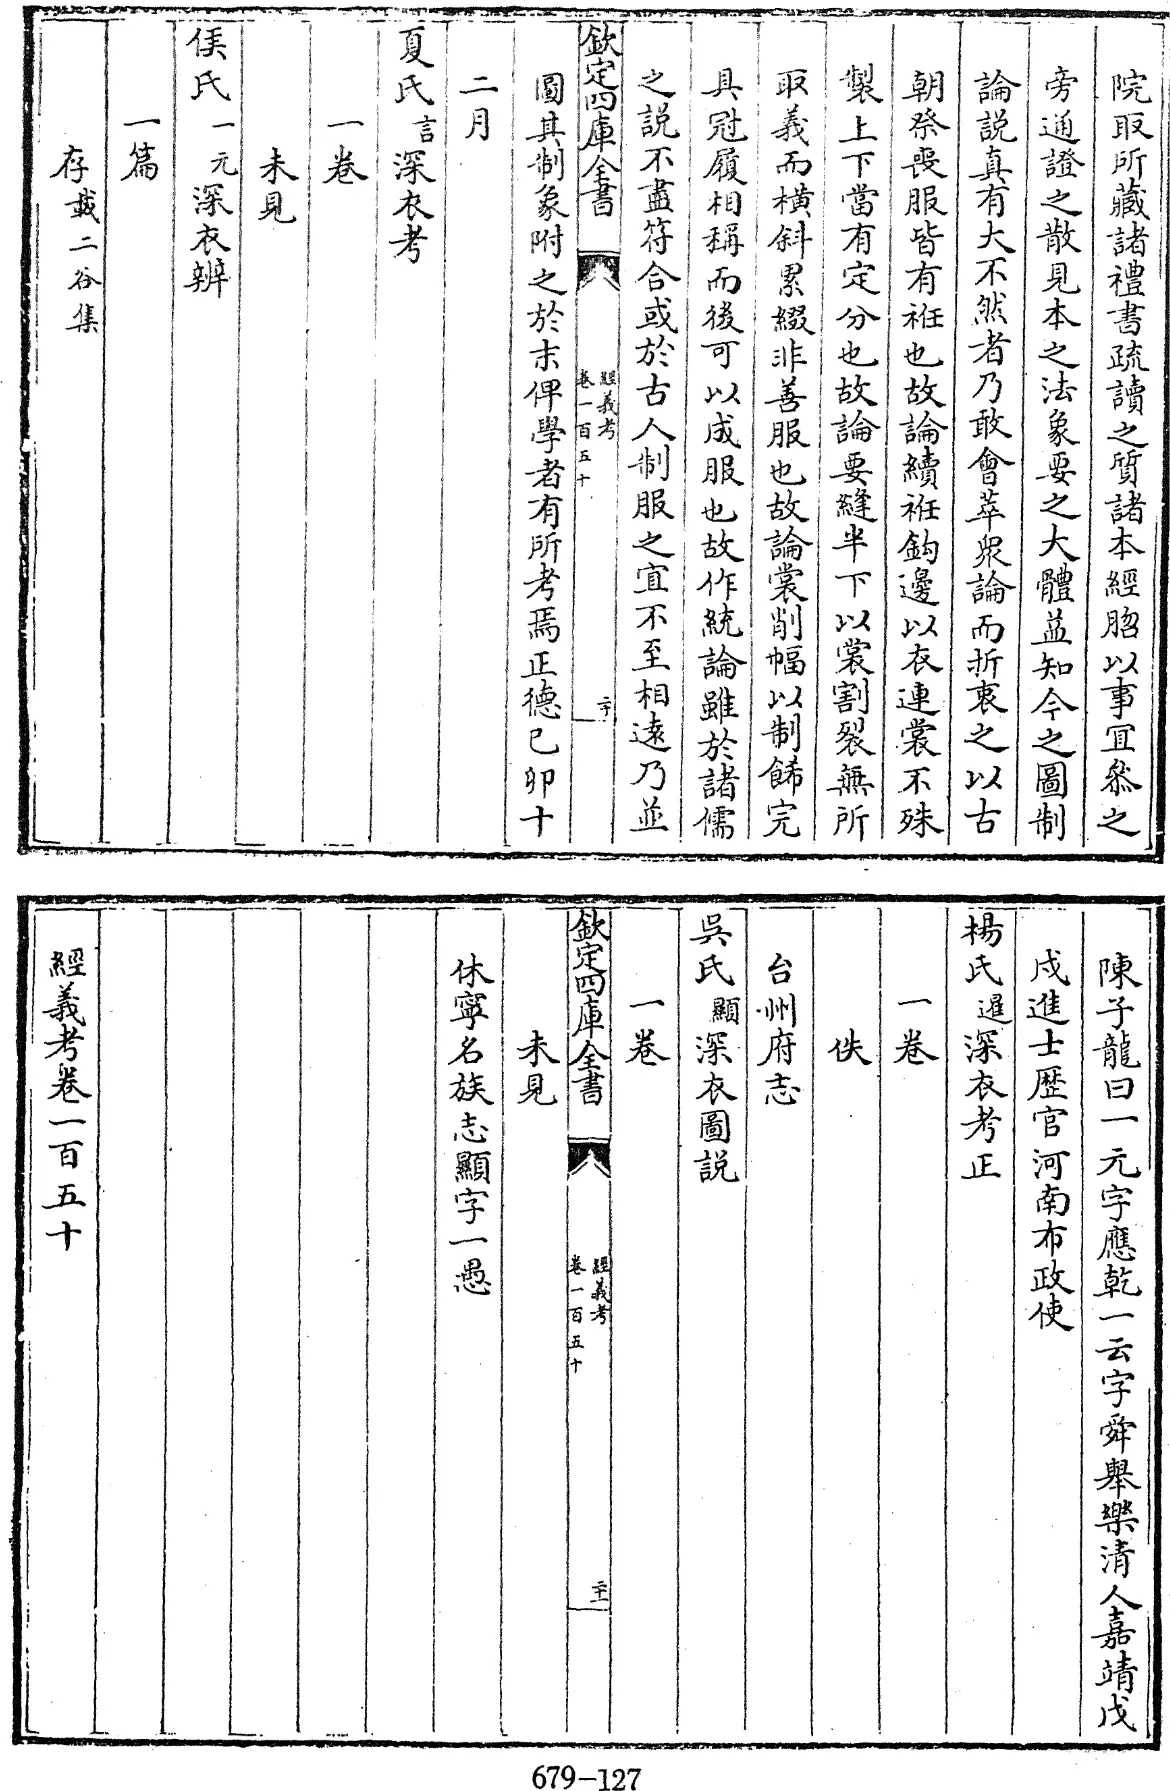 院取所藏諸禮書疏讀之質諸本經脗以事宜叅之
旁通證之散見本之法象要之大體益知今之圖制
論說真有大不然者乃敢會萃衆論而折衷之以古
朝祭喪服皆有袵也故論續袵鈎邊以衣連裳不殊
製上下當有定分也故論要縫半下以裳割裂無所
取義而橫斜累綴非善服也故論裳削幅以制餙完
具冠履相稱而後可以成服也故作統論雖於諸儒
之説不盡符合或於古人制服之宜不至相遠乃並
欽定四庫全書
經義考
卷一百五十
二十
圖其制象附之於末俾學者有所考焉正德己卯十
二月
夏氏言深衣考
一卷
未見
侯氏一元深衣辨
一篇
存載二谷集
陳子龍曰一元字應乾一云字舜舉樂清人嘉靖戊
戍進士歴官河南布政使
楊氏暹深衣考正
一卷
佚
台州府志
吳氏顯深衣圖説
一卷
欽定四庫全書
經義考
卷一百五十
二十一
未見
休寧名族志顯字一愚
經義考卷一百五十
679-127